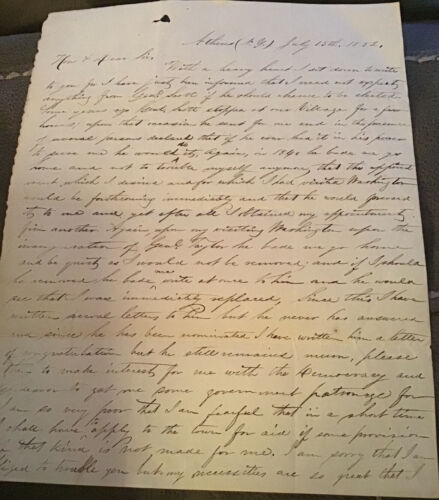 Athens (N.Y.) July 15th, 1852.
Hon & Dear Sir,
With a heavy heart I sit down to write
to you for I have been informed that I need not expect
anything from Genl Scott if he should chance to be elected
Some years ago Genl Scott stopped at our Village for a few
hours, upon that occasion he sent for me and in the presence
of several persons declared that if he ever had it in his power
to serve me he would do it, Again, in 1840 he bade me go
home and not to trouble myself anymore, that the appoint
ment which I desired and for which I had visited Washington
would be forthcoming immediately and that he would forward
it to me and yet after all I obtained my appointment
from another. Again, upon my visiting Washington upon the
inauguration of Genl Taylor he bade me go home
and be quiet, as I would not be removed, and if I should
be removed he bade me write at once to him and he would
see that I was immediately replaced, Since this I have
written several letters to him but he never has answered
one, since he has been nominated I have written him a letter
of congratulation but he still remained mum, please
then to make interest for me with the Democracy and
to get me some government patronage for
I am so very poor that I am fearful that in a short time
I shall have to apply to the town for aid if some provision
in that kind is not made for me. I am sorry that I am
to trouble you but my necessities are so great that I